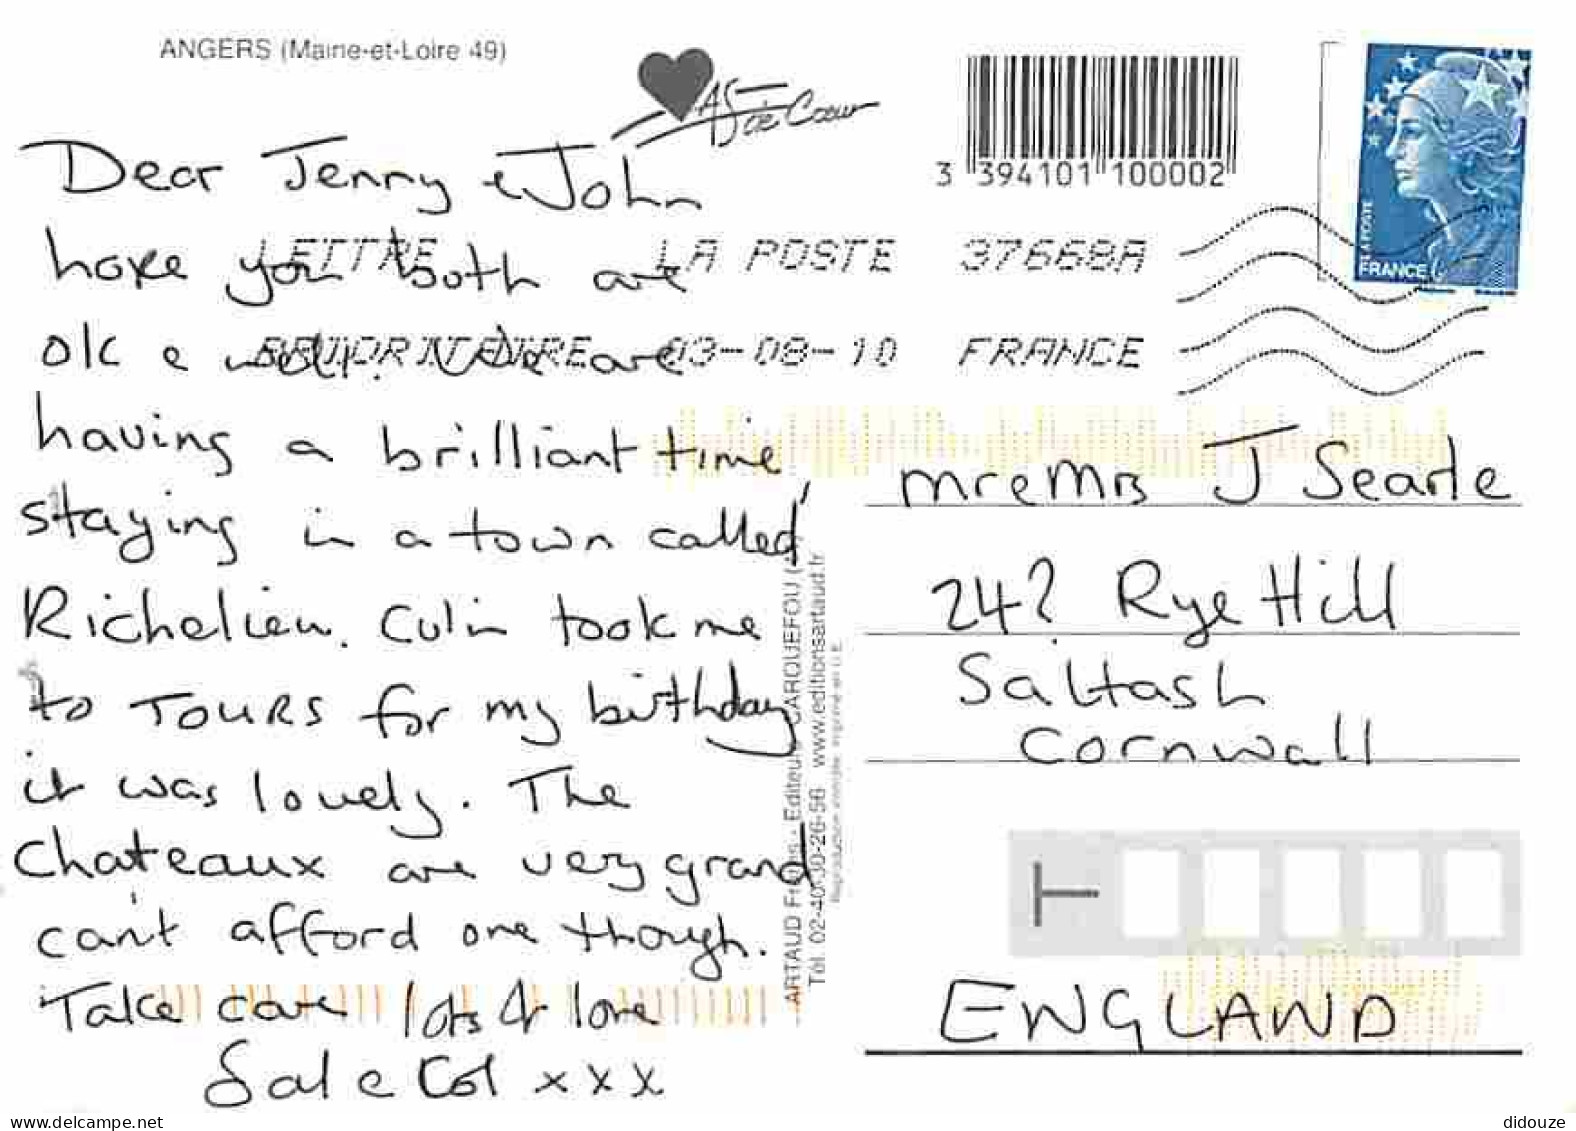 ANGERS (Maine-et-Loire 49)
AS de Cœur
3 394101 100002
FRANCE
LA POSTE
LETTRE LA POSTE 37668A
03-08-10 FRANCE
Dear Jenny & John
hope you both are
ok & well. We are
having a brilliant time,
staying in a town called
Richelieu. Colin took me
to TOURS for my birthday
it was lovely. The
Chateaux are very grand
can't afford one though.
Take care lots of love
Sal & Col x x x
ARTAUD Frères - Editeurs CARQUEFOU
Tél. 02-40-30-26-56 www.editionsartaud.fr
Reproduction interdite Imprimé en U.E.
Mr & Mrs J Searle
24? Rye Hill
Saltash
Cornwall
T
ENGLAND
www.delcampe.net
didouze